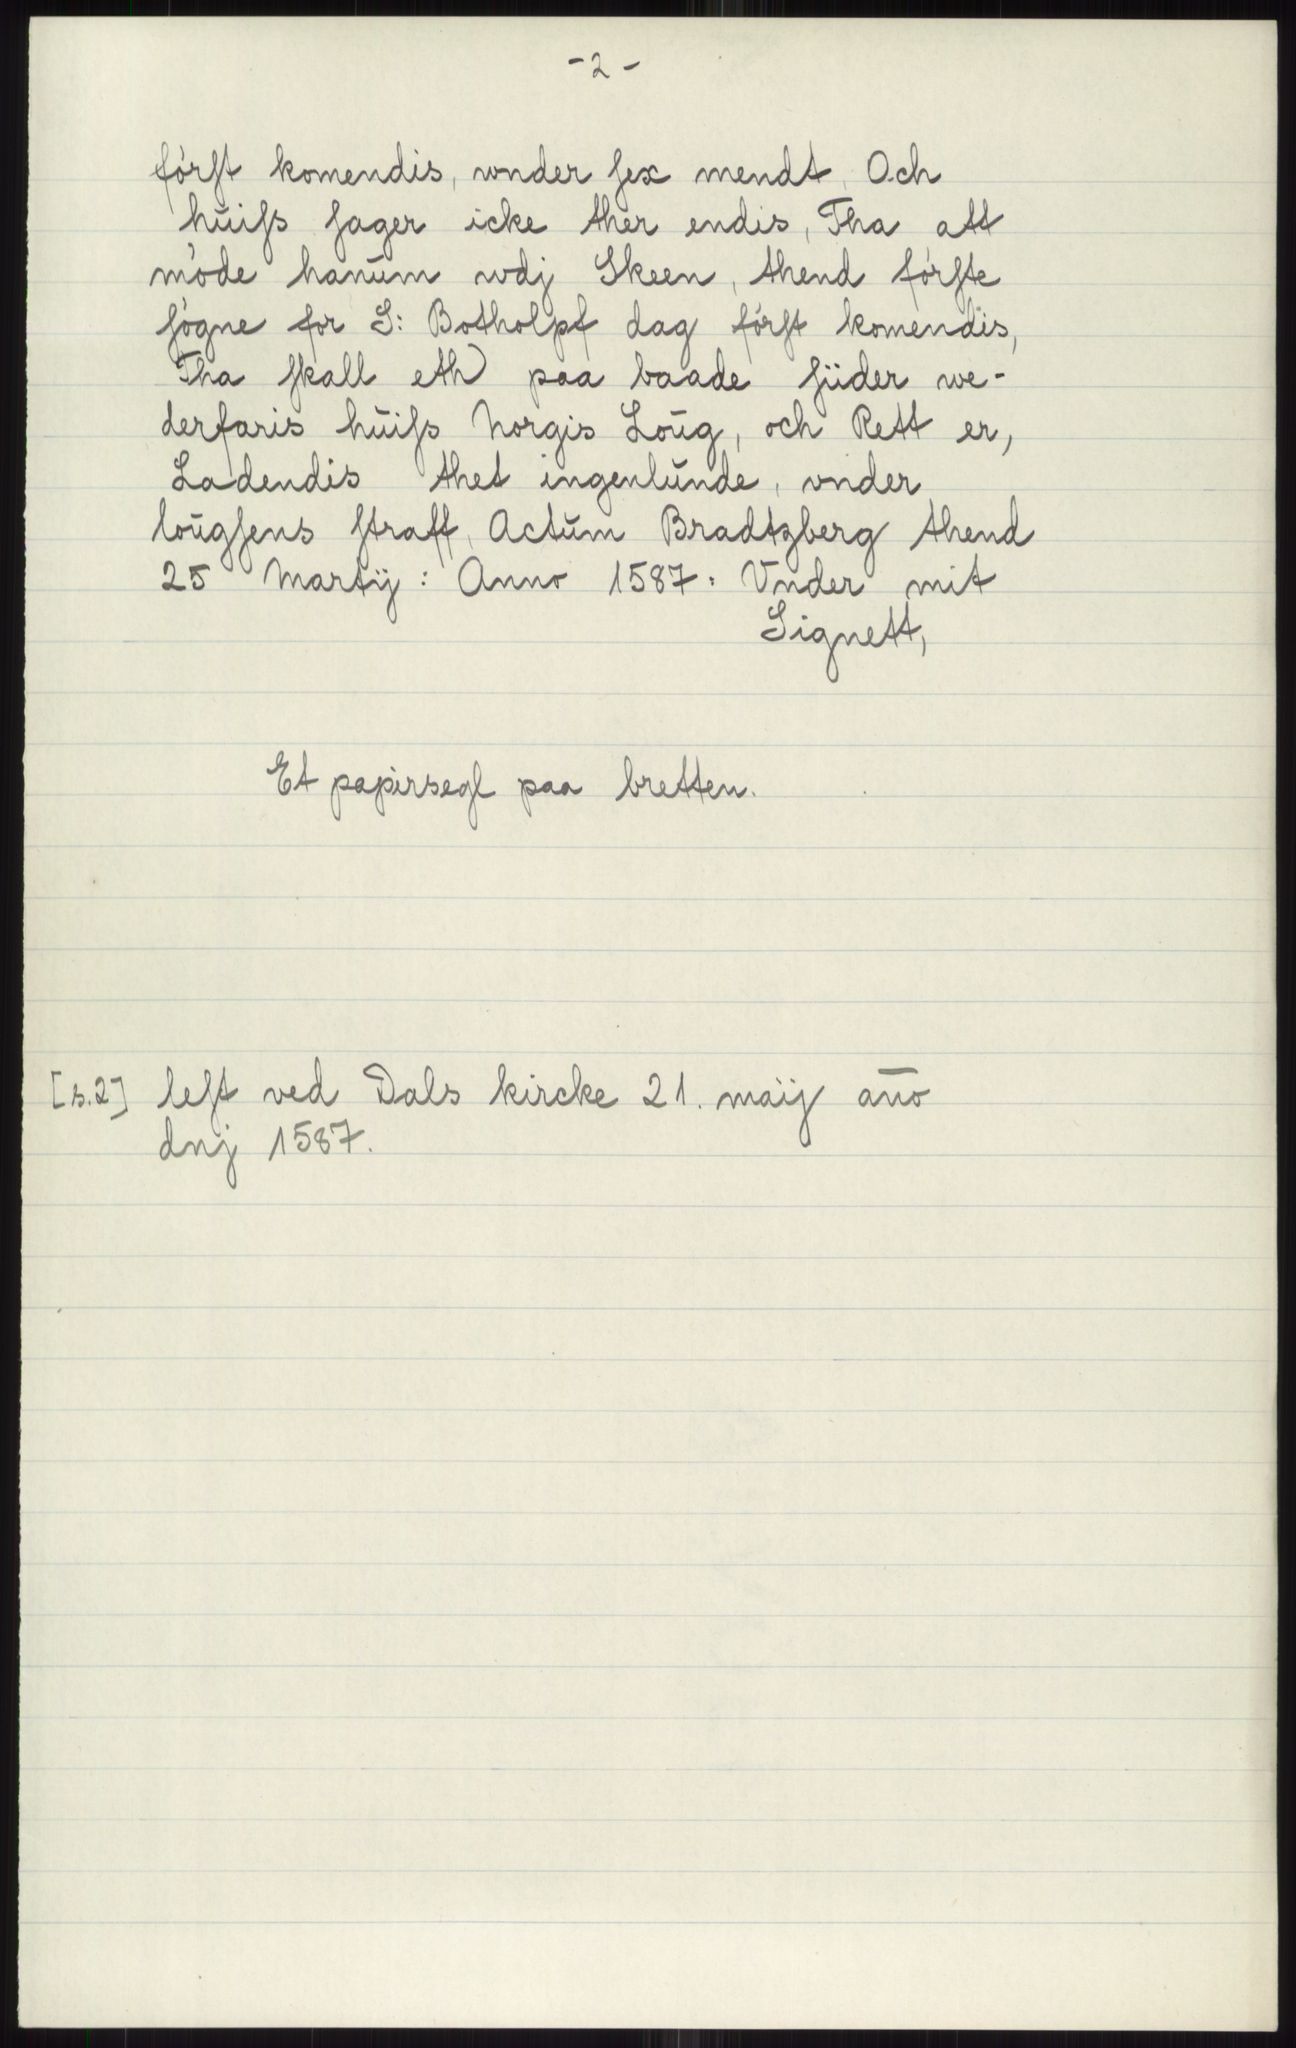 - 2 -
förſt komendis, wnder ſex mendt, Och
huiſs ſager icke ther endis, Tha att
möde hanŭm wdj Skeen, thend förſte
ſögne for S: Botholpf dag förſt komendis,
Tha ſkall eth paa baade ſiider we-
derfaris hŭiſs Norgis Loŭg, och Rett er,
Ladendis thet ingenlŭnde, vnder
loŭgſens ſtraff, Actŭm Bradtzberg thend
25 Martij: Anno 1587: Vnder mit
Signett,
Et papirsegl paa bretten.
[s.2] leſt ved Dals kircke 21. maij año
dnj 1587.